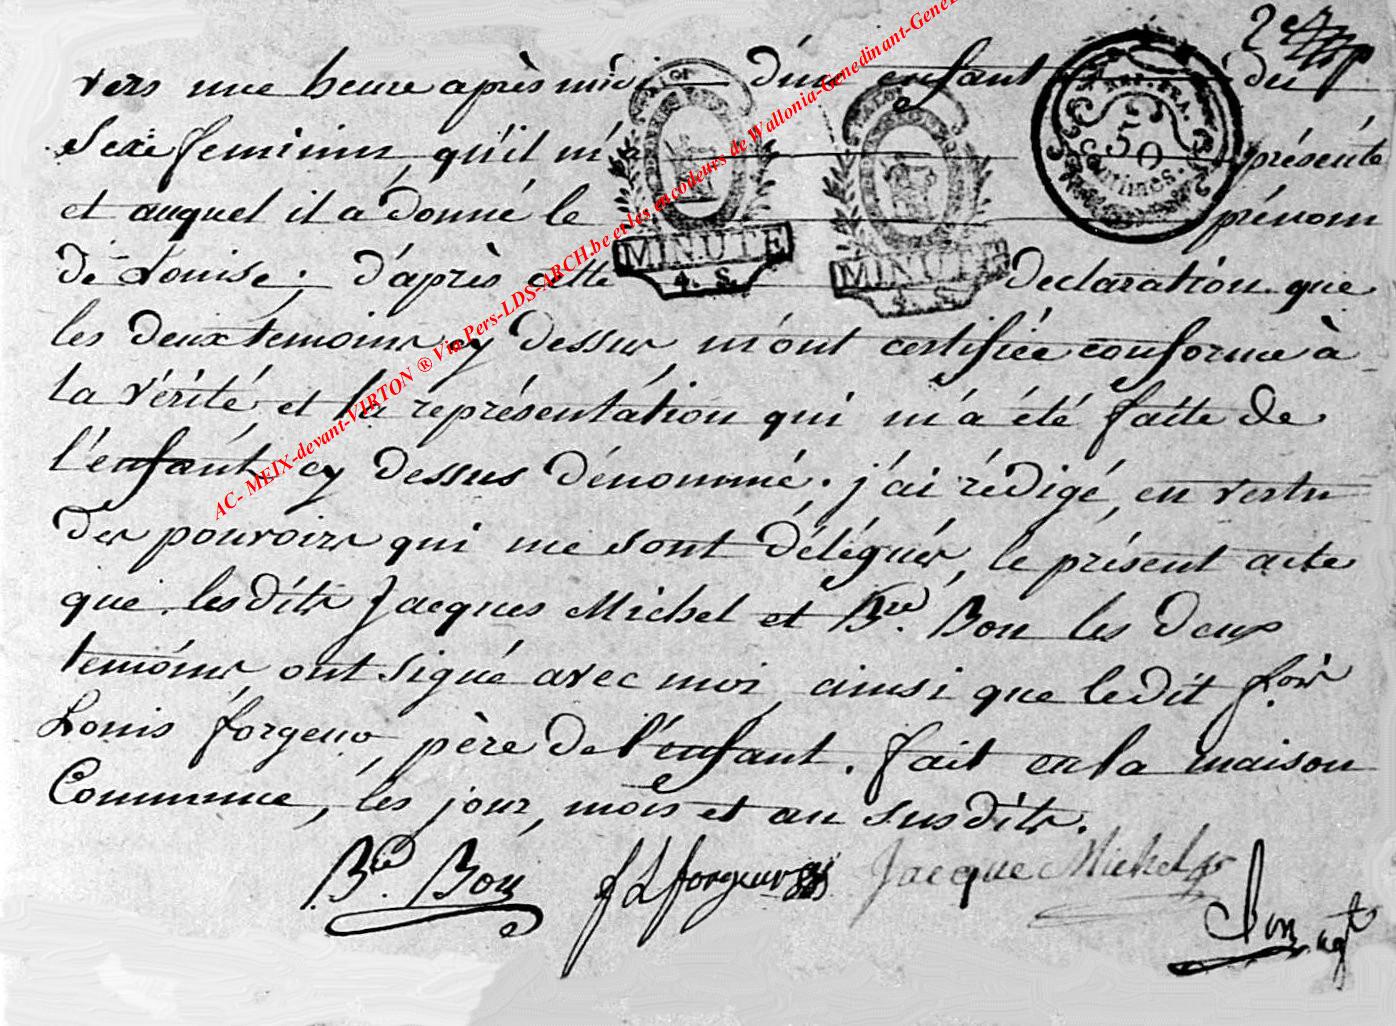 2e
vers une heure après midi d'un enfant du
Sexe feminin, qu'il m' présenté
et auquel il a donné le prénom
de Louise; d'après cette declaration que
les deux temoins cy dessus m'ont certifiée conforme à
la vérité, et la représentation qui m'a été faite de
l'enfant cy dessus dénommé, j'ai rédigé, en vertu
des pouvoirs qui me sont délégués, le présent acte
que lesdits Jacques Michel et Bre. Bon les deux
temoins ont signé avec moi, ainsi que ledit fois
Louis forgeur, père de l'enfant. fait en la maison
Commune, les jour, mois et an susdits.
B. Bon f L forgeur Jacque Michel
agt
MINUTE
4. S.
MINUTE
4. S.
REP. FRA.
50
Centimes.
AC- MEIX-devant-VIRTON ® Via Pers-LDS-ARCH.be er les encodeurs de Wallonia-Genedinant-Gene